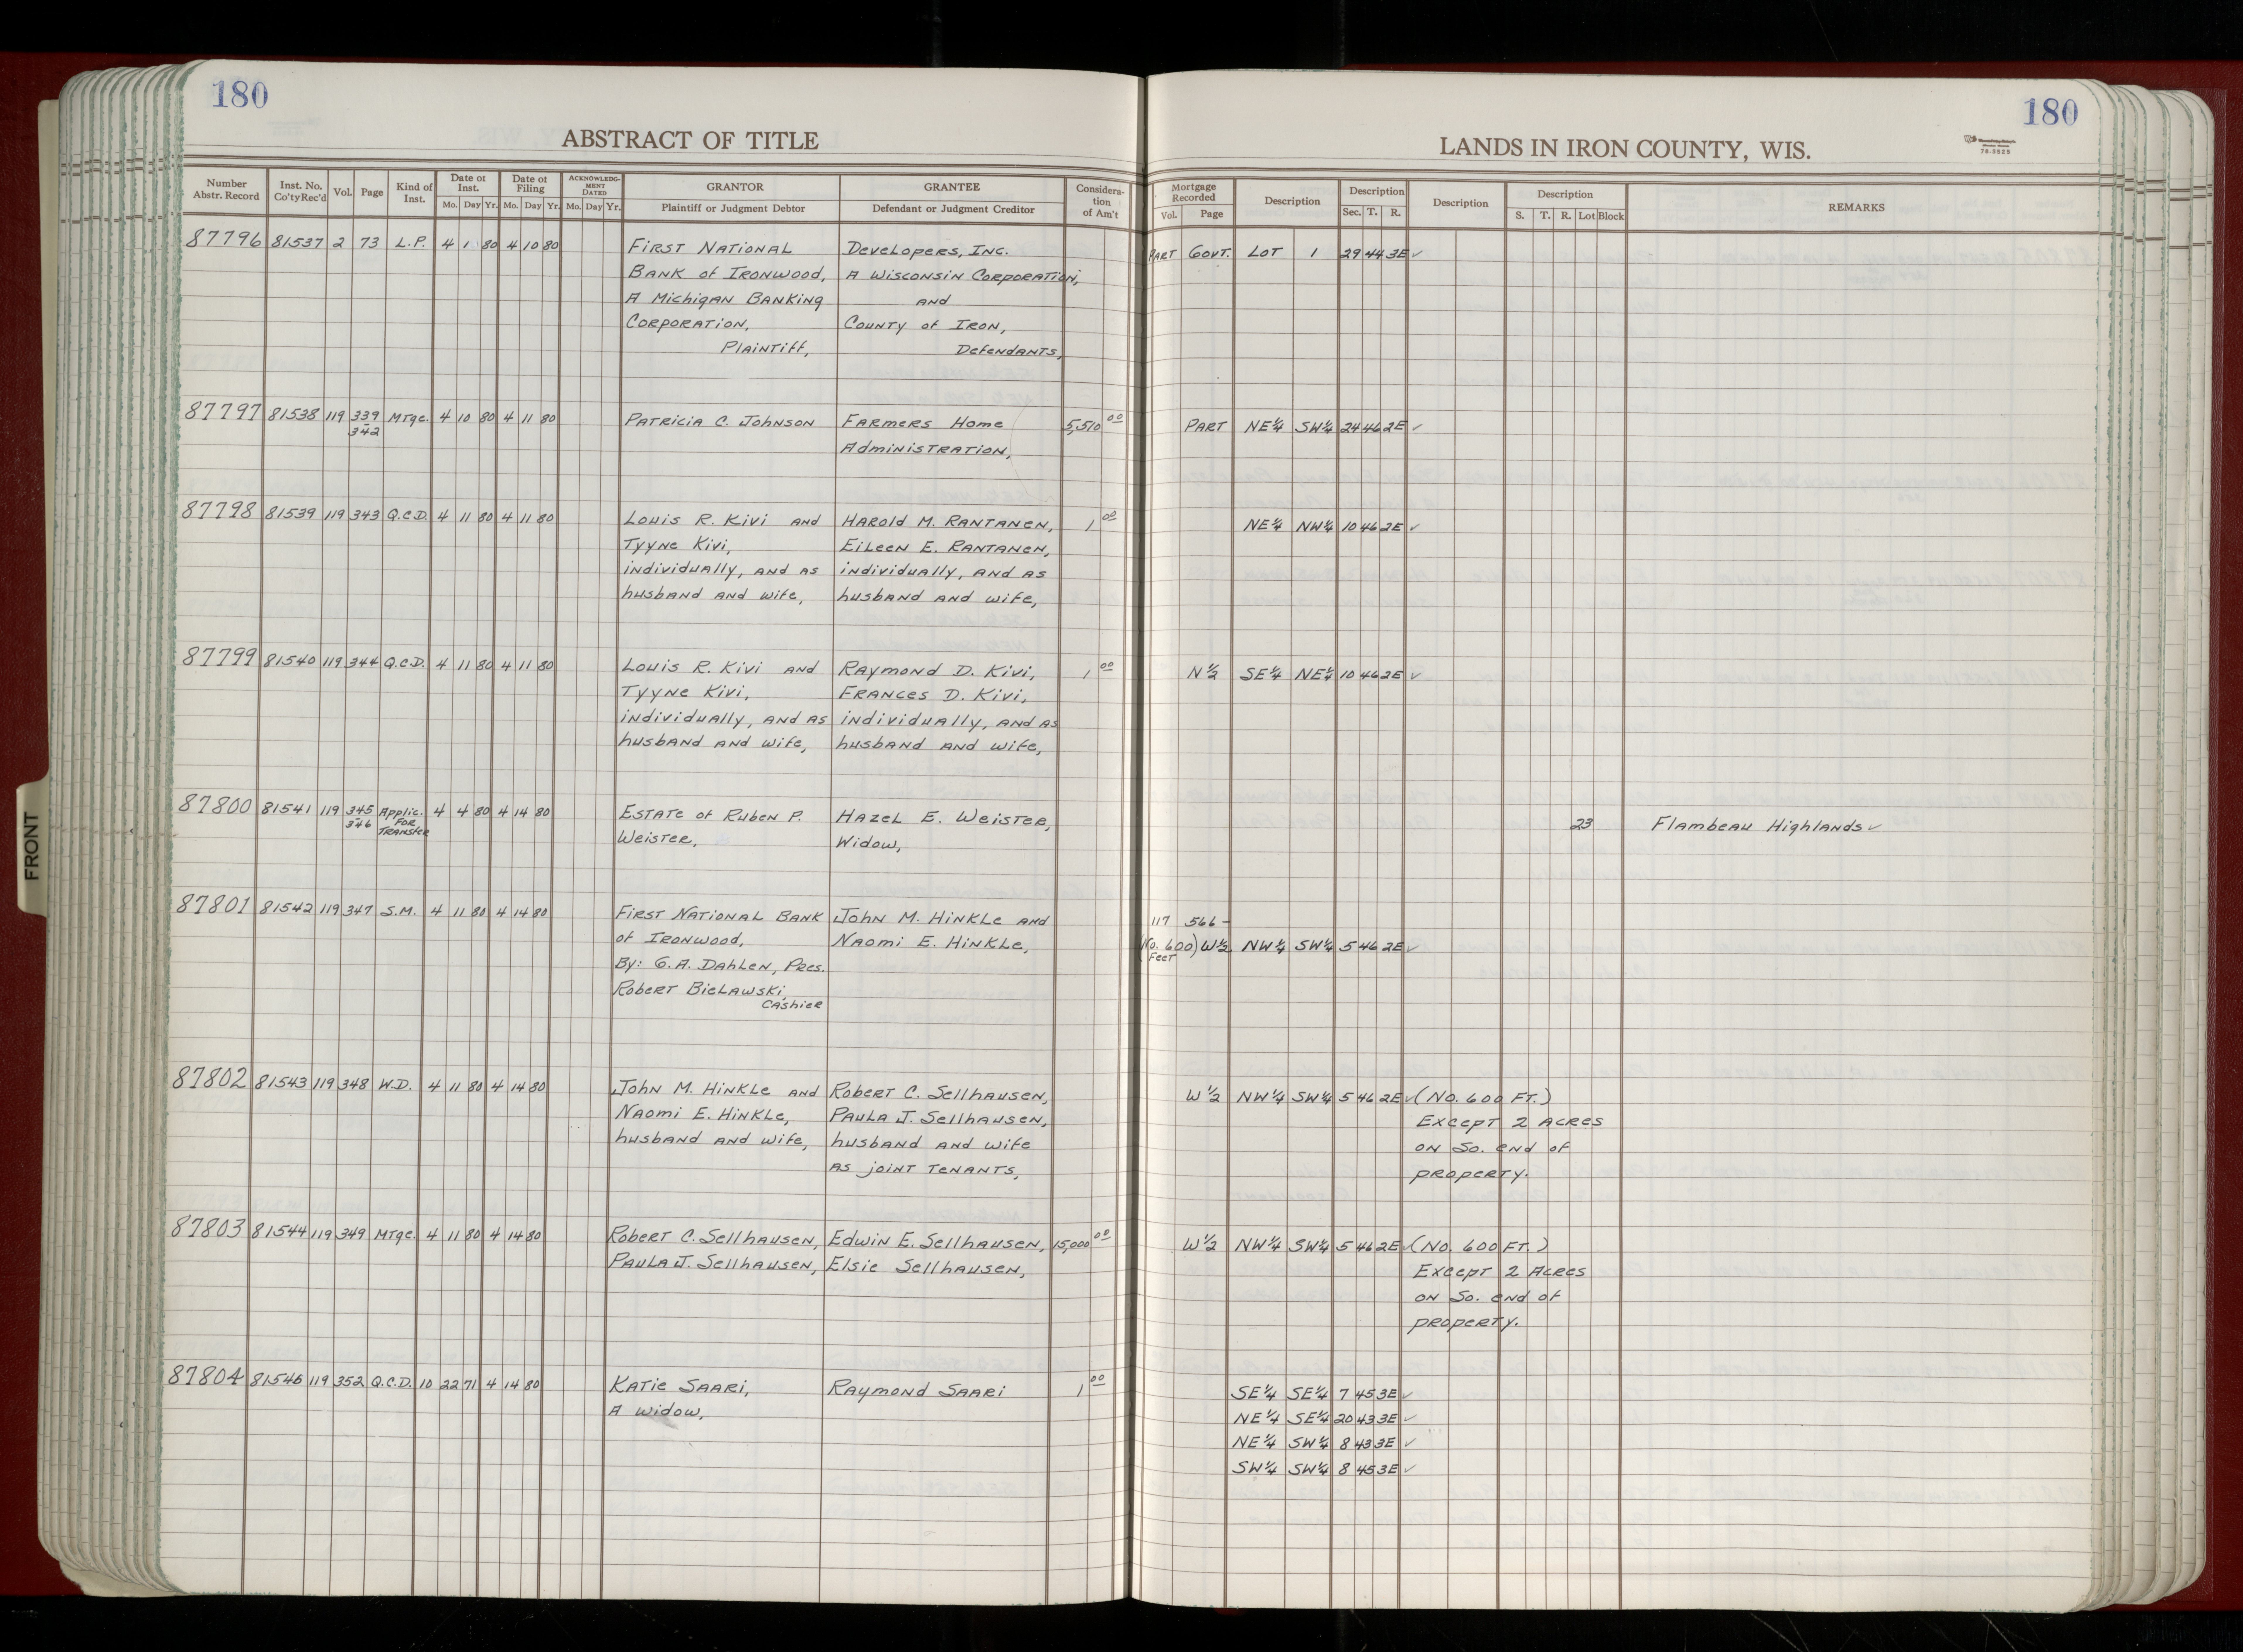 180
180
ABSTRACT OF TITLE
LANDS IN IRON COUNTY, WIS.
78-3525
FRONT
Number Abstr. Record Inst. No. Co'ty Rec'd Vol. Page Kind of Inst. Date of Inst. Mo. Day Yr. Date of Filing Mo. Day Yr. ACKNOWLEDGMENT DATED Mo. Day Yr. GRANTOR Plaintiff or Judgment Debtor GRANTEE Defendant or Judgment Creditor Consideration of Am't Mortgage Recorded Vol. Page Description Description Sec. T. R. Description Description S. T. R. Lot Block REMARKS
87796 81537 2 73 L.P. 4 1 80 4 10 80 First National Developers, Inc. Part Govt. Lot 1 29 44 3E ✓
Bank of Ironwood, A Wisconsin Corporation,
A Michigan Banking and
Corporation, County of Iron,
Plaintiff, Defendants,
87797 81538 119 339 Mtge. 4 10 80 4 11 80 Patricia C. Johnson Farmers Home 5,510 00 Part NE¼ SW¼ 24 46 2E ✓
-342 Administration,
87798 81539 119 343 Q.C.D. 4 11 80 4 11 80 Louis R. Kivi and Harold M. Rantanen, 1 00 NE¼ NW¼ 10 46 2E ✓
Tyyne Kivi, Eileen E. Rantanen,
individually, and as individually, and as
husband and wife, husband and wife,
87799 81540 119 344 Q.C.D. 4 11 80 4 11 80 Louis R. Kivi and Raymond D. Kivi, 1 00 N½ SE¼ NE¼ 10 46 2E ✓
Tyyne Kivi, Frances D. Kivi,
individually, and as individually, and as
husband and wife, husband and wife,
87800 81541 119 345 Applic. 4 4 80 4 14 80 Estate of Ruben P. Hazel E. Weister, 23 Flambeau Highlands ✓
-346 For Transfer Weister, Widow,
87801 81542 119 347 S.M. 4 11 80 4 14 80 First National Bank John M. Hinkle and 117 566-
of Ironwood, Naomi E. Hinkle, (No. 600 Feet) W½ NW¼ SW¼ 5 46 2E ✓
By: G.A. Dahlen, Pres.
Robert Bielawski,
Cashier
87802 81543 119 348 W.D. 4 11 80 4 14 80 John M. Hinkle and Robert C. Sellhausen, W½ NW¼ SW¼ 5 46 2E ✓ (No. 600 Ft.)
Naomi E. Hinkle, Paula J. Sellhausen, Except 2 Acres
husband and wife, husband and wife on So. end of
as joint tenants, property.
87803 81544 119 349 Mtge. 4 11 80 4 14 80 Robert C. Sellhausen, Edwin E. Sellhausen, 15,000 00 W½ NW¼ SW¼ 5 46 2E ✓ (No. 600 Ft.)
Paula J. Sellhausen, Elsie Sellhausen, Except 2 Acres
on So. end of
property.
87804 81546 119 352 Q.C.D. 10 22 71 4 14 80 Katie Saari, Raymond Saari 1 00 SE¼ SE¼ 7 45 3E ✓
A widow, NE¼ SE¼ 20 43 3E ✓
NE¼ SW¼ 8 43 3E ✓
SW¼ SW¼ 8 45 3E ✓